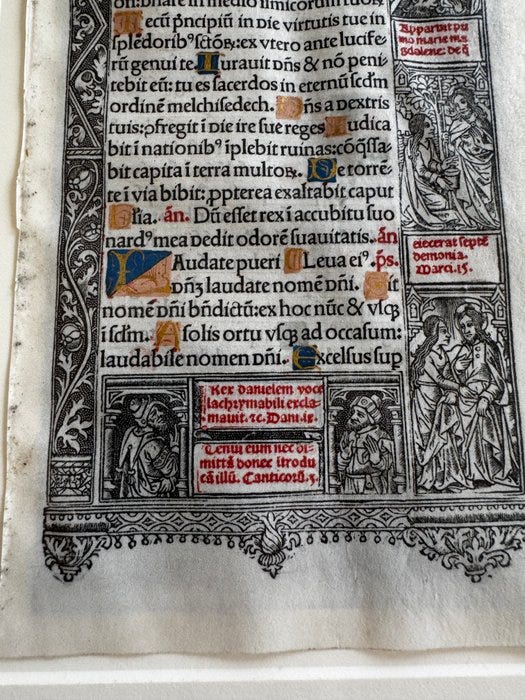 on: dñare in medio inimicorum tuoꝝ.
Tecũ p̃ncipiũ in die virtutis tue in
spledorib⁹ sctoꝝ: ex vtero ante lucife-
rũ genui te. Iurauit dñs & nõ peni-
tebit eũ: tu es sacerdos in eternũ scdm
ordinẽ melchisedech. Dñs a dextris
tuis: ꝯfregit i die ire sue reges. Iudica
bit i nationib⁹ iplebit ruinas: cõq̃ssa-
bit capita i terra multoꝝ. De torrẽ-
te i via bibit: ꝓpterea exaltabit caput
Glia. añ. Dũ esset rex i accubitu suo
nard⁹ mea dedit odorẽ suauitatis. añ
Leua ei⁹. ps.
LAudate pueri
dñꝫ laudate nomẽ dñi. Sit
nomẽ dñi bñdictũ: ex hoc nũc & vsq
i scdm. A solis ortu vsq ad occasum:
laudabile nomen dñi. Excelsus sup
Apparuit pri
mo marie ma
gdalene: de q̃
eiecerat septẽ
demonia.
Marci. 15.
Rex danielem voce
lachrymabili excla-
mauit. ⁊c. Dani. ix.
Tenui eum nec di-
mittã donec itrodu
cã illũ. Canticorũ. 3.